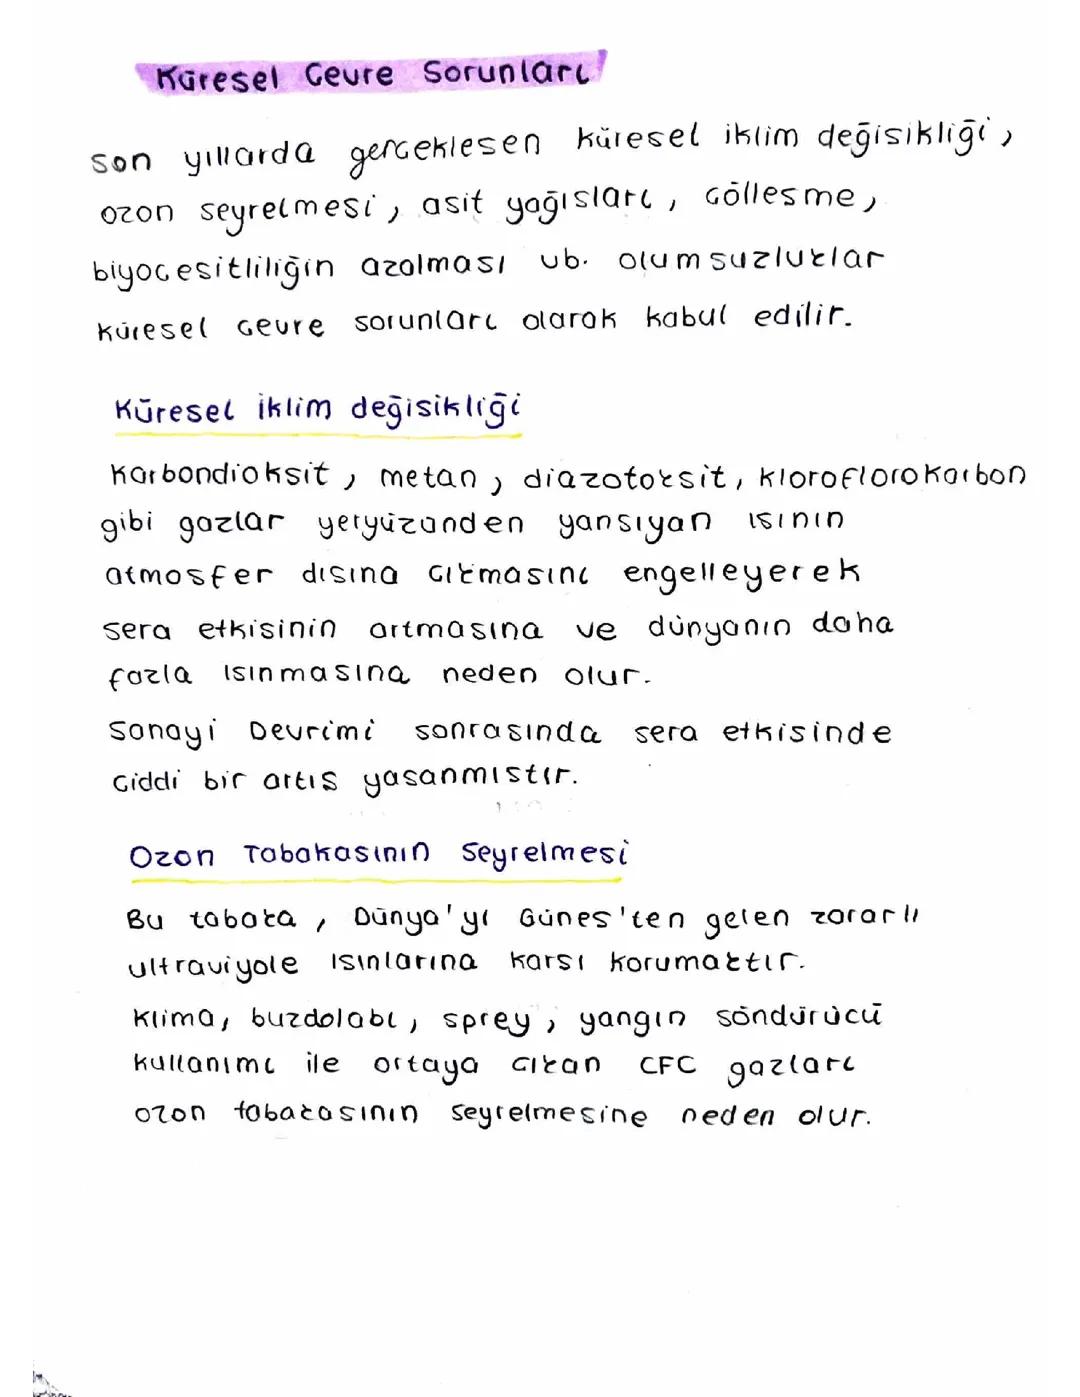 Küresel Cevre Sorunları
son yıllarda gerceklesen küresel iklim değisikliği,
ozon seyrelmesi, asit yağısları, cöllesme,
biyocesitliliğin azalması vb. olumsuzluklar
küresel cevre sorunları olarak kabul edilir.
Küresel iklim değisikliği
Karbondioksit, metan, diazotoksit, kloroflorokarbon
gibi gazlar yeryüzünden yansıyan ısının
atmosfer dısına cıkmasını engelleyerek
sera etkisinin artmasına ve dünyanın daha
fazla ısınmasına neden olur.
Sanayi Devrimi sonrasında sera etkisinde
ciddi bir artıs yasanmıstır.
Ozon Tabakasının Seyrelmesi
Bu tabaka, Dünya'yı Günes'ten gelen zararlı
ultraviyole ısınlarına karsı korumaktır.
Klima, buzdolabı, sprey, yangın söndürücü
kullanımı ile ortaya cıkan CFC gazları
ozon tabakasının seyrelmesine neden olur.